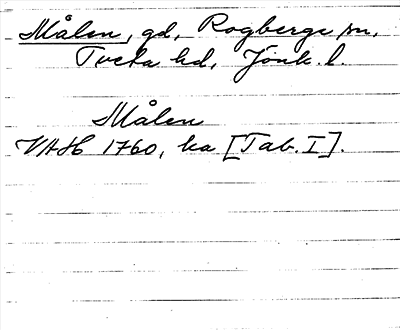 Målen, gd, Rogberga sn,
Tveta hd, Jönk. l.
Målen
VAH 1760, ka [Tab. I].